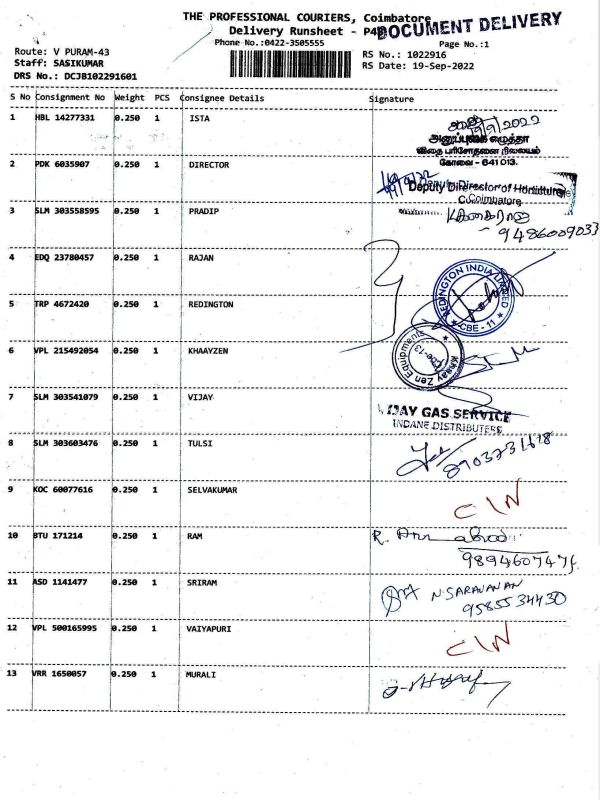 THE PROFESSIONAL COURIERS, Coimbatore
DOCUMENT DELIVERY
Delivery Runsheet - P4
Phone No.:0422-3505555
Page No.:1
Route: V PURAM-43
Staff: SASIKUMAR
DRS No.: DCJB102291601
RS No.: 1022916
RS Date: 19-Sep-2022
S No Consignment No Weight PCS Consignee Details Signature
1 HBL 14277331 0.250 1 ISTA
19/9/2022
அனுப்புகை எழுத்தர்
விதை பரிசோதனை நிலையம்
கோவை - 641 013.
2 PDK 6035907 0.250 1 DIRECTOR
Deputy Director of Horticulture
Coimbatore
3 SLM 303558595 0.250 1 PRADIP
9486009033
4 EDQ 23780457 0.250 1 RAJAN
5 TRP 4672420 0.250 1 REDINGTON
REDINGTON INDIA LIMITED
CBE - 11
6 VPL 215492054 0.250 1 KHAAYZEN
Khaay Zen Equipments
Cbe-13
7 SLM 303541079 0.250 1 VIJAY
VIJAY GAS SERVICE
INDANE DISTRIBUTERS
8 SLM 303603476 0.250 1 TULSI
9 KOC 60077616 0.250 1 SELVAKUMAR
C/N
10 BTU 171214 0.250 1 RAM
R.
11 ASD 1141477 0.250 1 SRIRAM
N. SARAVANAN
9585534430
12 VPL 500165995 0.250 1 VAIYAPURI
C/N
13 VRR 1650057 0.250 1 MURALI